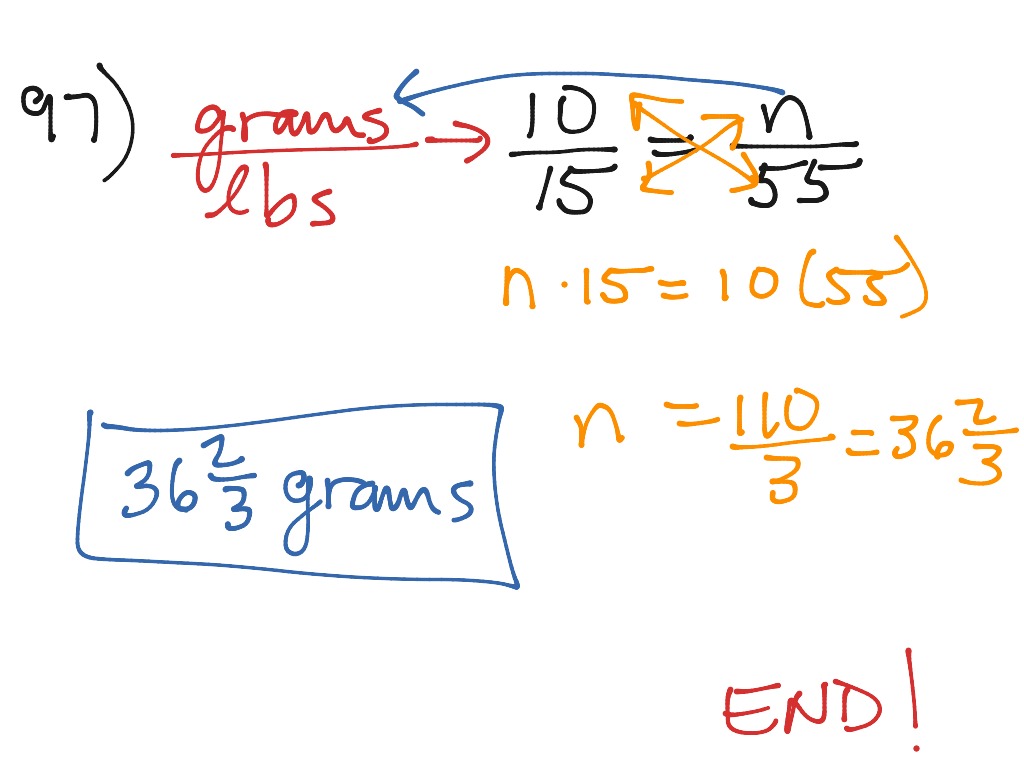 97) grams/lbs → 10/15 = n/55
n · 15 = 10(55)
n = 110/3 = 36 2/3
36 2/3 grams
END!